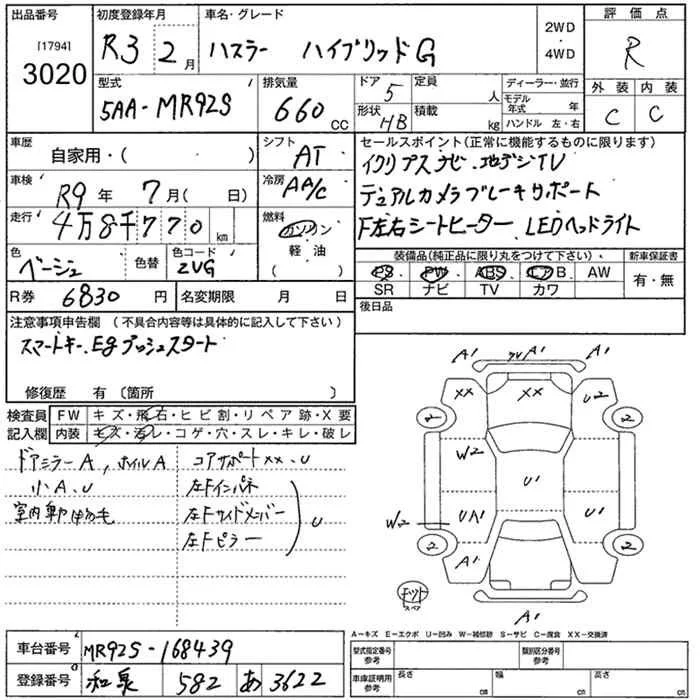 出品番号 初度登録年月 車名・グレード 評価点
[1794] 3020 R3 2月 ハスラー ハイブリッドG 2WD・4WD R
型式 排気量 ドア 定員 ディーラー・並行 外装 内装
5AA-MR92S 660 CC 5 人 モデル年式 年 C C
形状 HB 積載 kg ハンドル 左・右
車歴 シフト セールスポイント(正常に機能するものに限ります)
自家用・( ) AT イクリプスナビ.地デジTV
車検 冷房 デュアルカメラブレーキサポート
R9年 7月( 日) AA/C F左右シートヒーター.LEDヘッドライト
走行 4万8千770km 燃料 ガソリン
軽・油
( )
色 色替 色コード 装備品(純正品に限り丸をつけて下さい) 新車保証書
ベージュ ZVG PS PW ABS エアB AW 有・無
SR ナビ TV カワ
R券 6830円 名変期限 月 日 後日品
注意事項申告欄(不具合内容等は具体的に記入して下さい)
スマートキー.Egプッシュスタート
修復歴 有 〔箇所 〕
検査員 FW キズ・飛石・ヒビ割・リペア跡・X要
記入欄 内装 キズ・汚レ・コゲ・穴・スレ・キレ・破レ
ドアミラーA,ホイルA コアサポートXX.U
小A.U 左Fインパネ
左Fサイドメンバー U
左Fピラー
A1 A1 A1
XX XX U2
2 2
W2 U1
W2 UA1 U1
2 2
A1
A1
A-キズ E-エクボ U-凹み W-補修跡 S-サビ C-腐食 XX-交換済
車台番号 MR92S-168439 型式指定番号 参考 類別区分番号 参考
登録番号 和泉 582 あ 3622 車庫証明用 参考 長さ cm 幅 cm 高さ cm